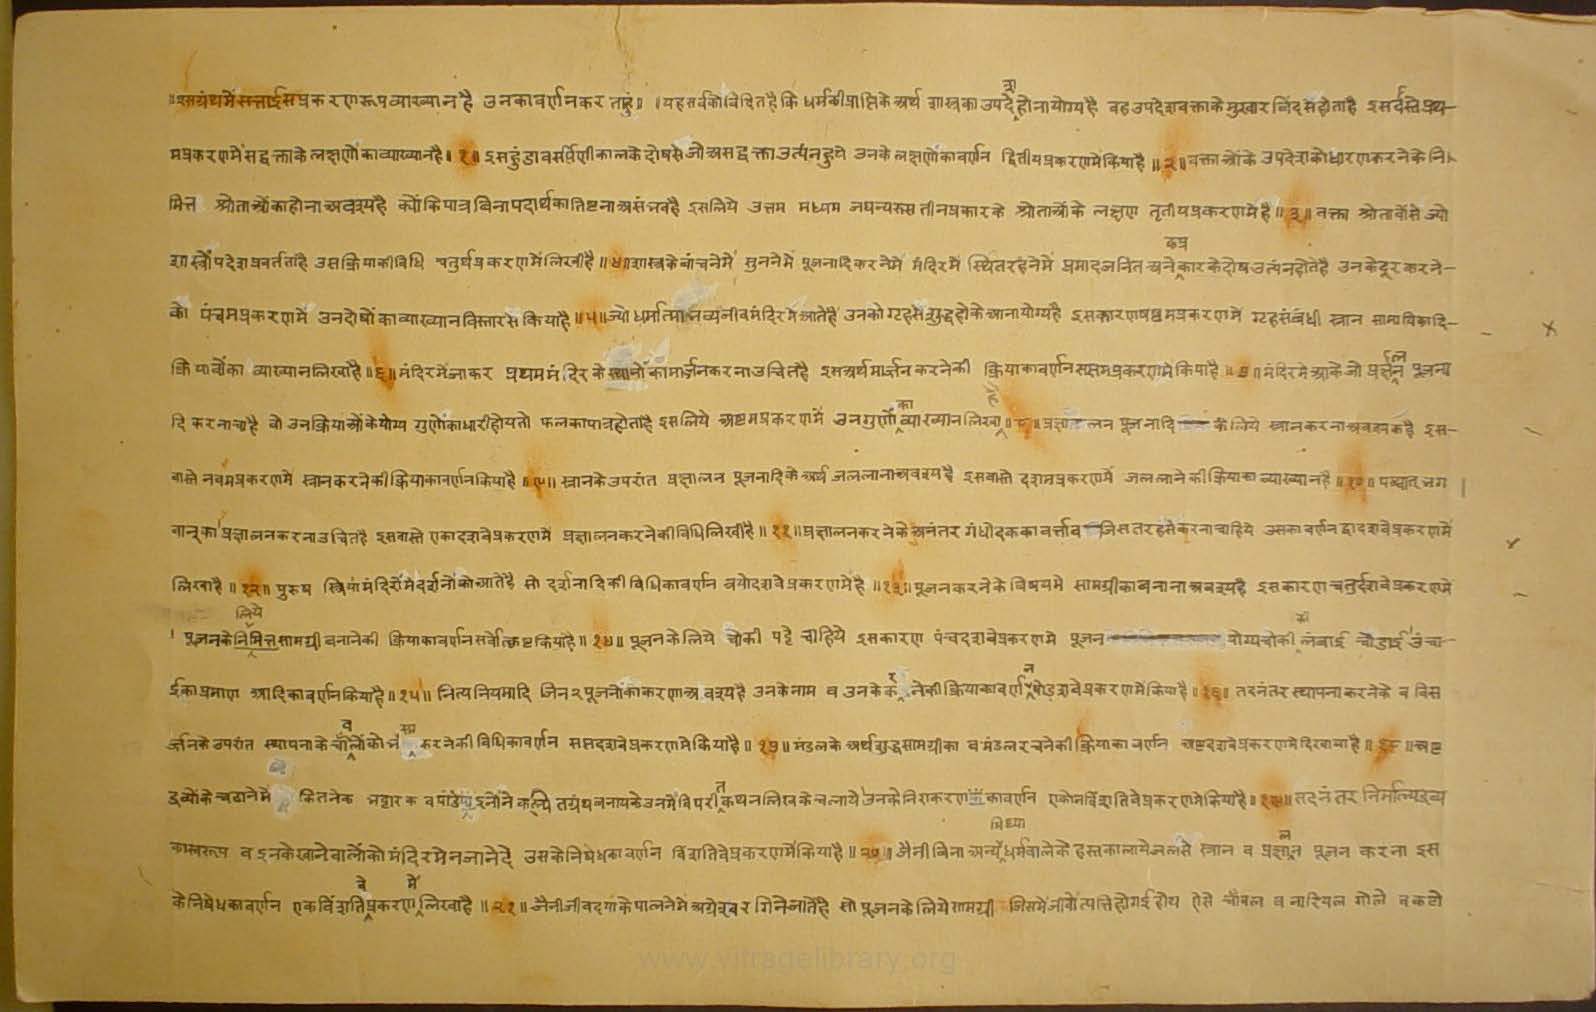 ॥इसग्रंथमेंसत्ताईसप्रकरणरूपव्याख्यानहै उनकावर्णनकरताहुं॥ ।यहसर्वकोविदितहैकि धर्मकीप्राप्तिके अर्थ शास्त्रका उपदेशहोनायोग्यहै वह उपदेशवक्ताके मुखारविंदसेहोताहै इसवास्तेप्रथ-
मप्रकरणमेंसद्वक्ताके लक्षणोंकाव्याख्यानहै॥१॥ इसहुंडावसर्प्पिणीकालके दोषसे जोअसद्वक्ताउत्पंनहुये उनके लक्षणोंकावर्णन द्वितीयप्रकरणमेंकियाहै॥२॥वक्ताओंके उपदेशकोधारणकरनेकेनि-
मित्त श्रोताओंकाहोनाअवश्यहै क्योंकिपात्रबिनापदार्थकातिष्टनाअसंभवहै इसलिये उत्तम मध्यम जघन्यरूपतीनप्रकारके श्रोताओंके लक्षण तृतीयप्रकरणमेंहै॥३॥ वक्ता श्रोतावोंसे ज्यो
शास्त्रोपदेशप्रवर्त्तताहै उसक्रियाकीविधि चतुर्थप्रकरणमेंलिखीहै॥४॥शास्त्रकेबांचनेमें सुननेमें पूजनादिकरनेमें मंदिरमें स्थितरहनेमें प्रमादजनित अनेकप्रकारकेदोषउत्पंनहोतेहै उनकेदूरकरने-
को पंचमप्रकरणमें उनदोषोंकाव्याख्यानविस्तारसेकियाहै॥५॥ज्योधर्मात्माभव्यजीवमंदिरमेंआतेहै उनकोग्टहसेशुद्धहोकेआनायोग्यहै इसकारणषष्ठमप्रकरणमें ग्टहसंबंधी स्नान सामायिकादि-
क्रियावोंका व्याख्यानलिखाहै॥६॥मंदिरमेंजाकर प्रथममंदिरके स्थानोंकामार्ज्जनकरनाउचितहै इसअर्थमार्ज्जनकरनेकी क्रियाकावर्णनसप्तमप्रकरणमेंकियाहै॥७॥मंदिरमेंआके जो प्रक्षालन पूजना
दि करनाचाहै वो उनक्रियाओंकेयोग्य गुणोंकाधारीहोयतो फलकापात्रहोताहै इसलिये अष्टमप्रकरणमें उनगुणोंकाव्याख्यानलिखाहै॥८॥प्रक्षालन पूजनादि केलिये स्नानकरनाआवश्यकहै इस-
वास्ते नवमप्रकरणमें स्नानकरनेकीक्रियाकावर्णनकियाहै॥९॥ स्नानकेउपरांत प्रक्षालन पूजनादिकेअर्थ जललानाअवश्यहै इसवास्ते दशमप्रकरणमें जललानेकीक्रियाका व्याख्यानहै॥१०॥ पश्चात् भग
वान्काप्रक्षालनकरनाउचितहै इसवास्ते एकादशवेप्रकरणमें प्रक्षालनकरनेकीविधिलिखीहै॥११॥प्रक्षालनकरनेकेअनंतर गंधोदककावर्त्ताव जिसतरहसेकरनाचाहिये उसकावर्णन द्वादशवेप्रकरणमें
लिखाहै॥१२॥ पुरुष स्त्रियांमंदिरोंमेंदर्शनोंकोआतेहै सो दर्शनादिकीविधिकावर्णन त्रयोदशवेप्रकरणमेंहै॥१३॥पूजनकरनेके विषयमें सामग्रीकाबनानाअवश्यहै इसकारण चतुर्दशवेप्रकरणमें
पूजनकेलिये सामग्रीबनानेकी क्रियाकावर्णनसर्वोत्कृष्टकियाहै॥१४॥ पूजनकेलिये चोकी पट्टे चाहिये इसकारण पंचदशवेप्रकरणमें पूजन योग्यचोकीकी लंबाई चोडाई उंचा-
ईकाप्रमाण आदिकावर्णनकियाहै॥१५॥ नित्यनियमादि जिन२पूजनोंकाकरणाअवश्यहै उनकेनाम व उनकेकरनेकीक्रियाकावर्णन षोडशवेप्रकरणमेंकियाहै॥१६॥ तदनंतर स्थापनाकरनेके व विस
र्ज्जनकेउपरांत स्थापनाके चांवलोंको करनेकीविधिकावर्णन सप्तदशवेप्रकरणमेंकियाहै॥१७॥मंडलकेअर्थशुद्धसामग्रीका व मंडलरचनेकीक्रियाका वर्णन अष्टदशवेप्रकरणमेंदिखायाहै॥१८॥अष्ट
द्रव्योंकेचढानेमें कितनेक भट्टारक व पांडेयोंइनोंने कल्पितग्रंथबनायकेउनमेंविपरीतकथनलिखकेचलाये उनकेनिराकरण कावर्णन एकोनविंशतिवेप्रकरणमेंकियाहै॥१९॥तदनंतर निर्माल्यद्रव्य
कास्वरूप व इनकेखानेवालोंको मंदिरमेंनजानेदे उसकेनिषेधकावर्णन विंशतिवेप्रकरणमेंकियाहै॥२०॥ जैनीबिना अन्यमिथ्याधर्मवालेके हस्तकालायेजलसे स्नान व प्रक्षालन पूजन करना इस
केनिषेधकावर्णन एकविंशतिवेप्रकरणमेंलिखाहै॥२१॥जैनीजीवदयाकेपालनेमेंअग्रेश्वर गिनेजातेहै सो पूजनकेलियेसामग्री जिसमेंजीवोत्पत्तिहोगईहोय ऐसे चाँवल व नारियल गोले वकटो
www.vitragelibrary.org